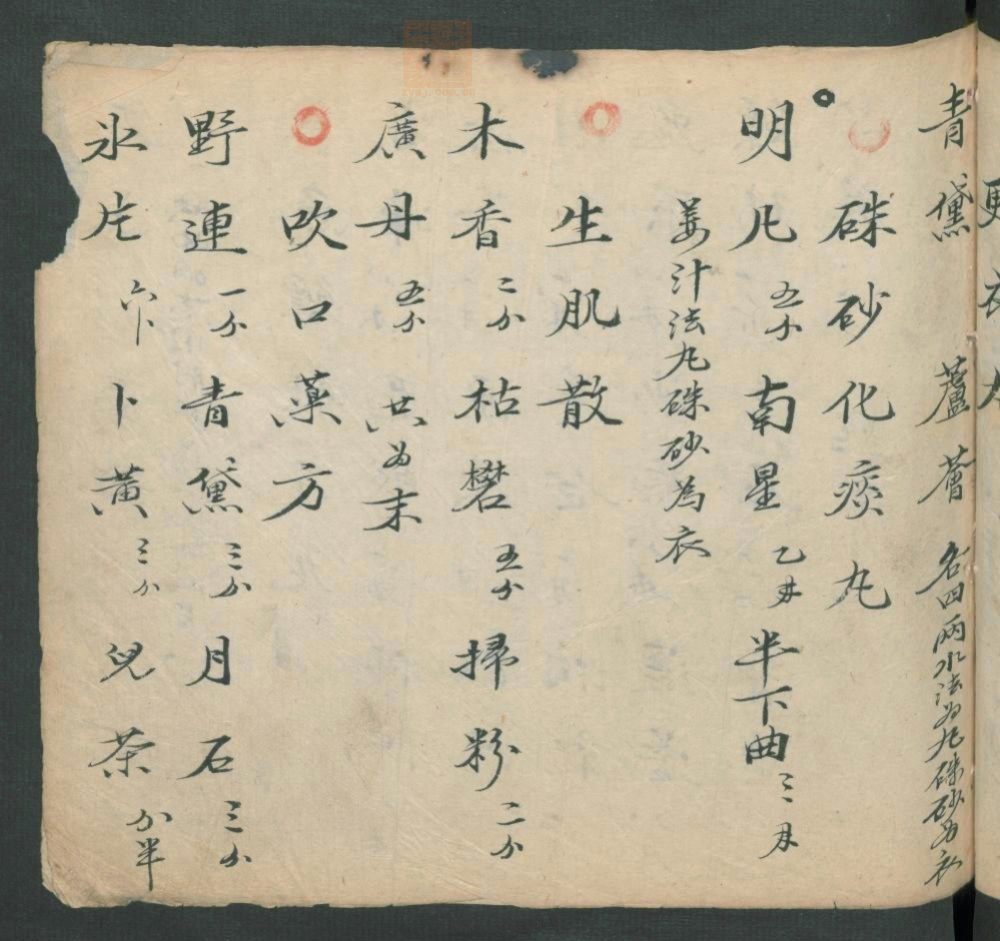 青黛 蘆薈 各四兩水法为丸硃砂为衣
硃砂化痰丸
明凡 五分 南星 乙 半下曲 三
姜汁法丸硃砂為衣
生肌散
木香 二分 枯礬 五分 掃粉 二分
廣丹 五分 共为末
吹口薬方
野連 一分 青黛 三分 月石 三分
氷片 卜黄 三分 児茶 分半